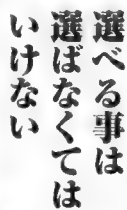 選べる事は
選ばなくては
いけない